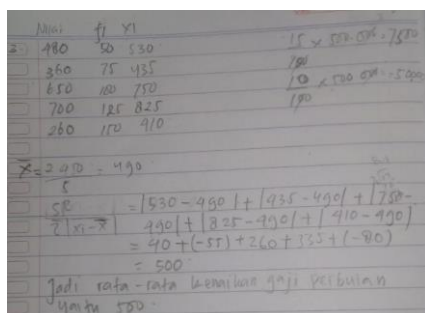 Nilai fi xi
2. 480 50 530
360 75 435
650 100 750
700 125 825
260 150 410
15 × 500.000 = 7500
100
10 × 500.000 = 5000
100
x̄ = 2450 = 490
5
SR = |530 - 490| + |435 - 490| + |750 -
Σ|xi - x̄| 490| + |825 - 490| + |410 - 490|
= 40 + (-55) + 260 + 335 + (-80)
= 500
Jadi rata-rata kenaikan gaji perbulan
yaitu 500.